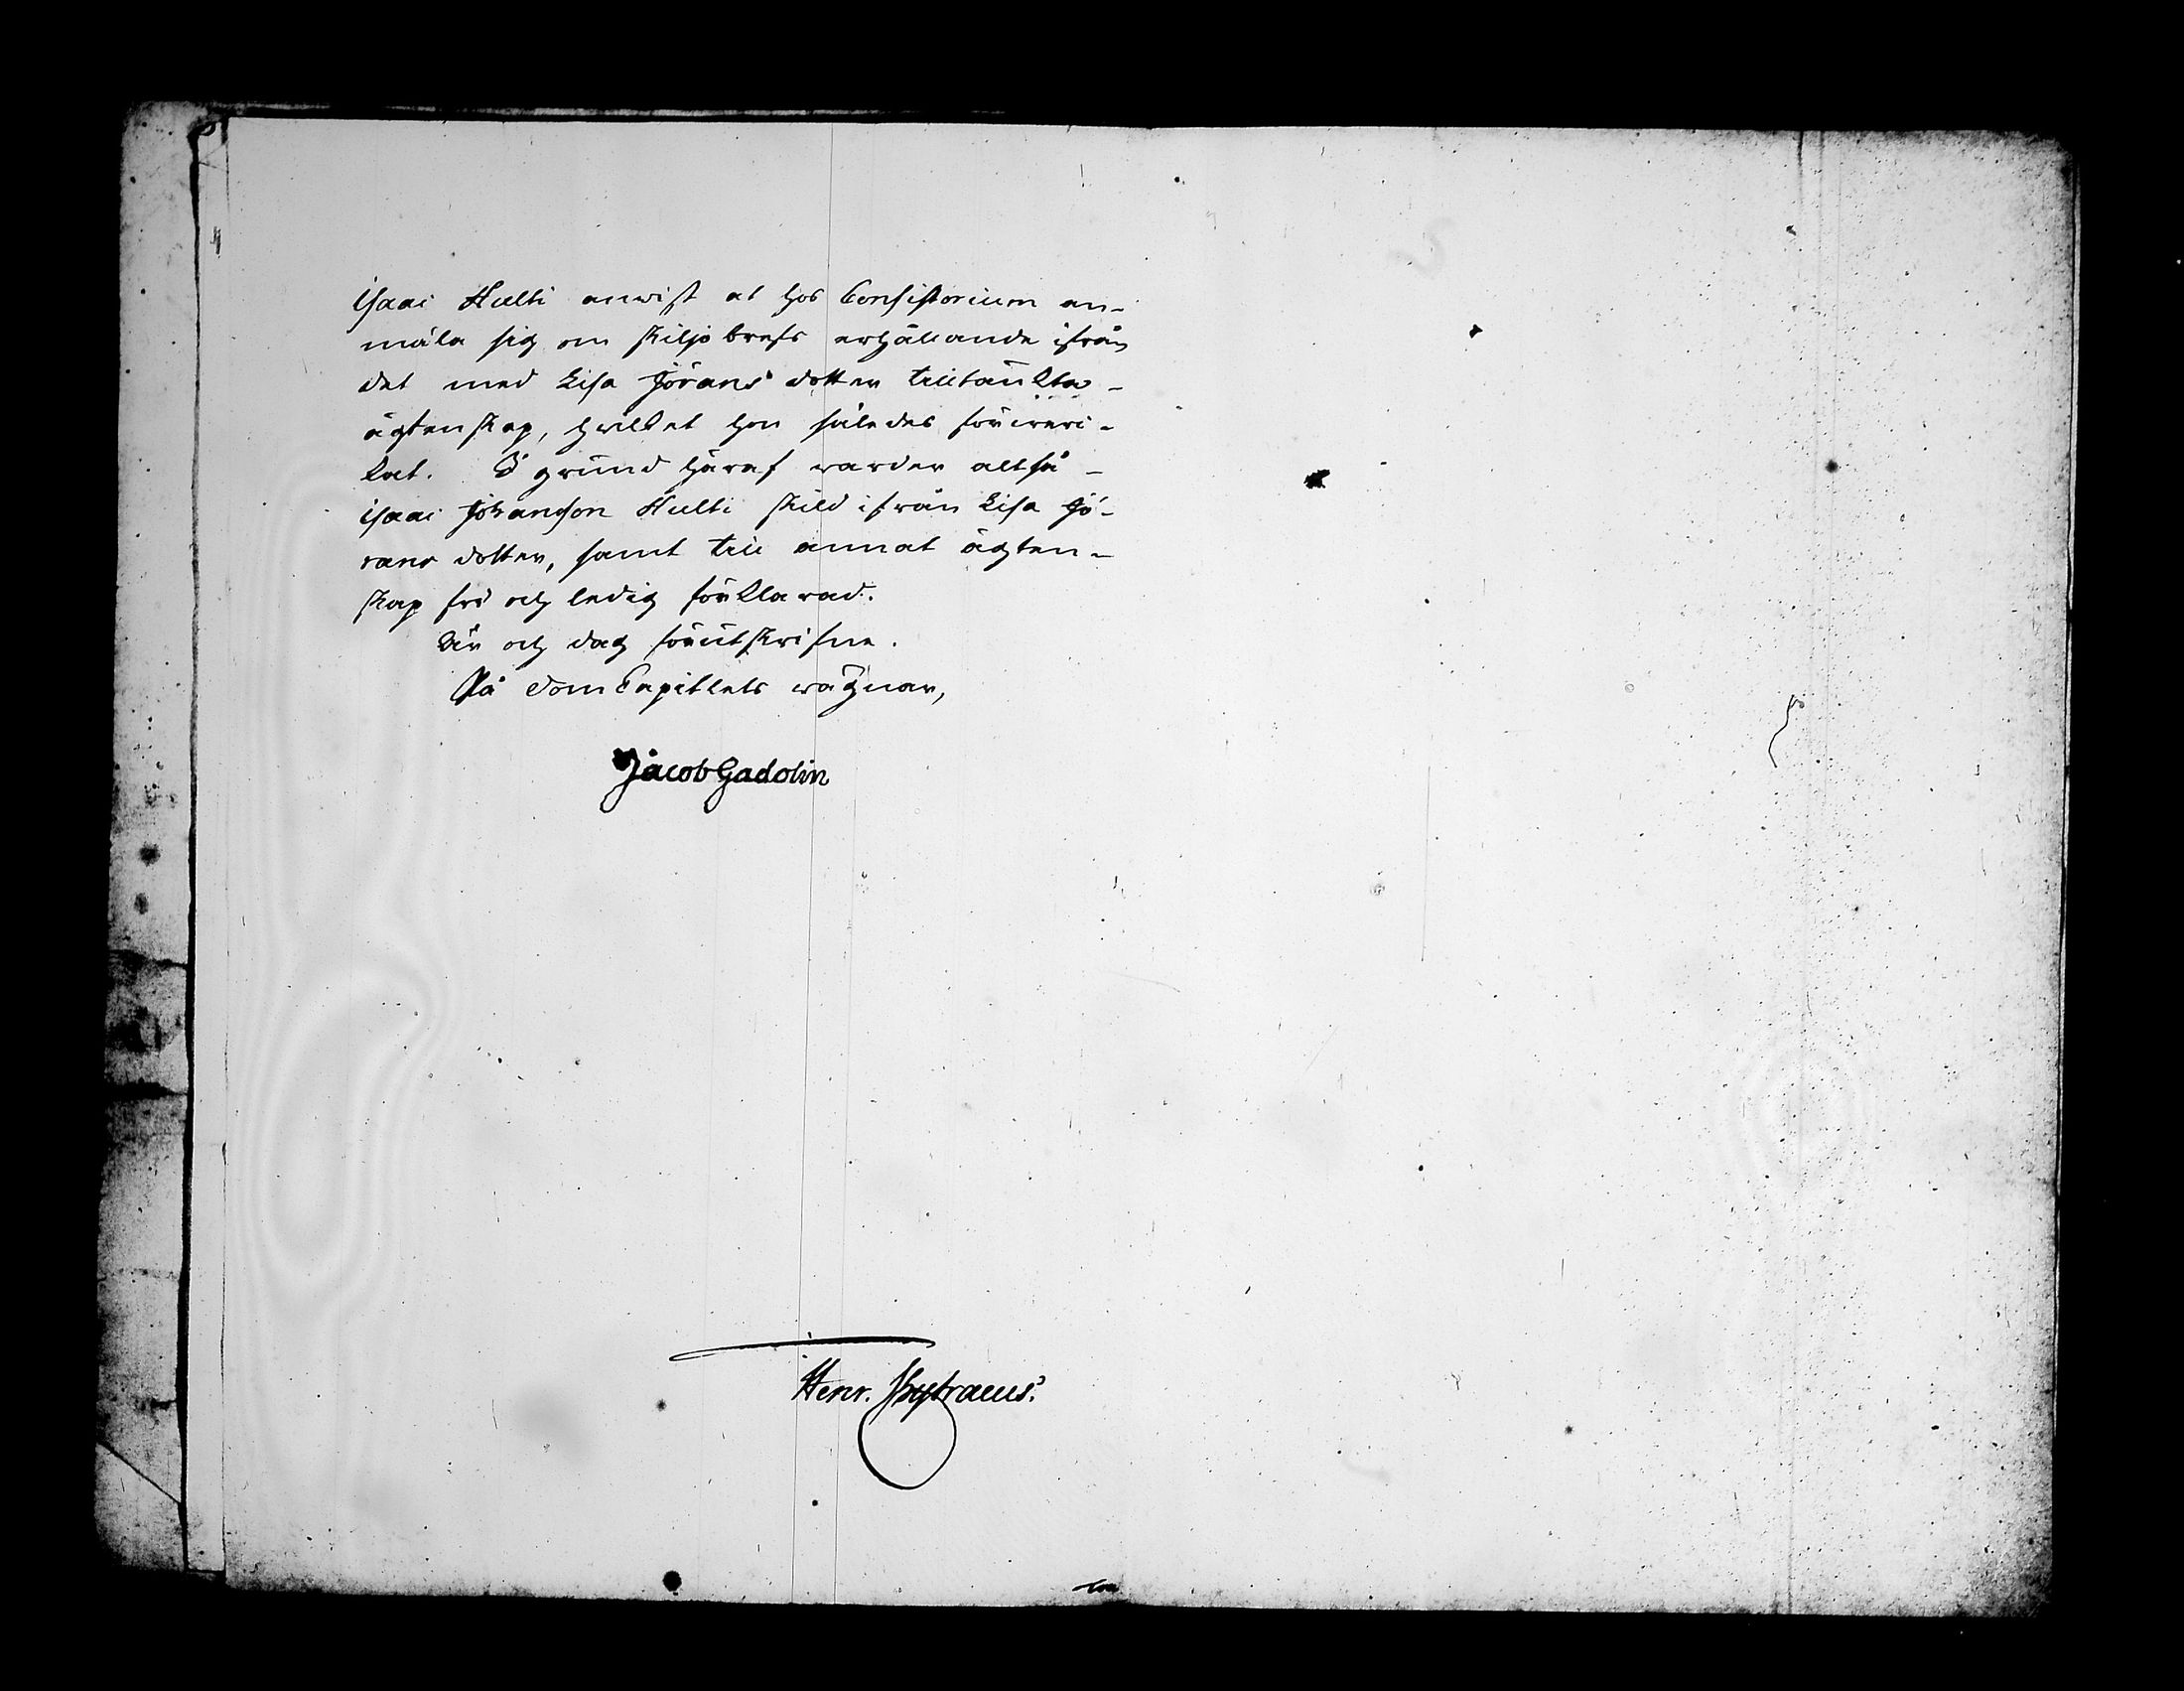 Isaac Hulti anwist at hos Consistorium an-
mäla sig om skiljobrefs erhållande ifrån
det med Lisa Jörans dotter tilltänkta
ägtenskap, hvilket hon således förwer-
kat. I grund häraf warder altså
Isaac Johansson Hulti skild ifrån Lisa Jö-
rans dotter, samt till annat ägten-
skap fri och ledig förklarad.
År och dag förutskrifne.
På DomCapitlets wägnar,
Jacob Gadolin
Henr.